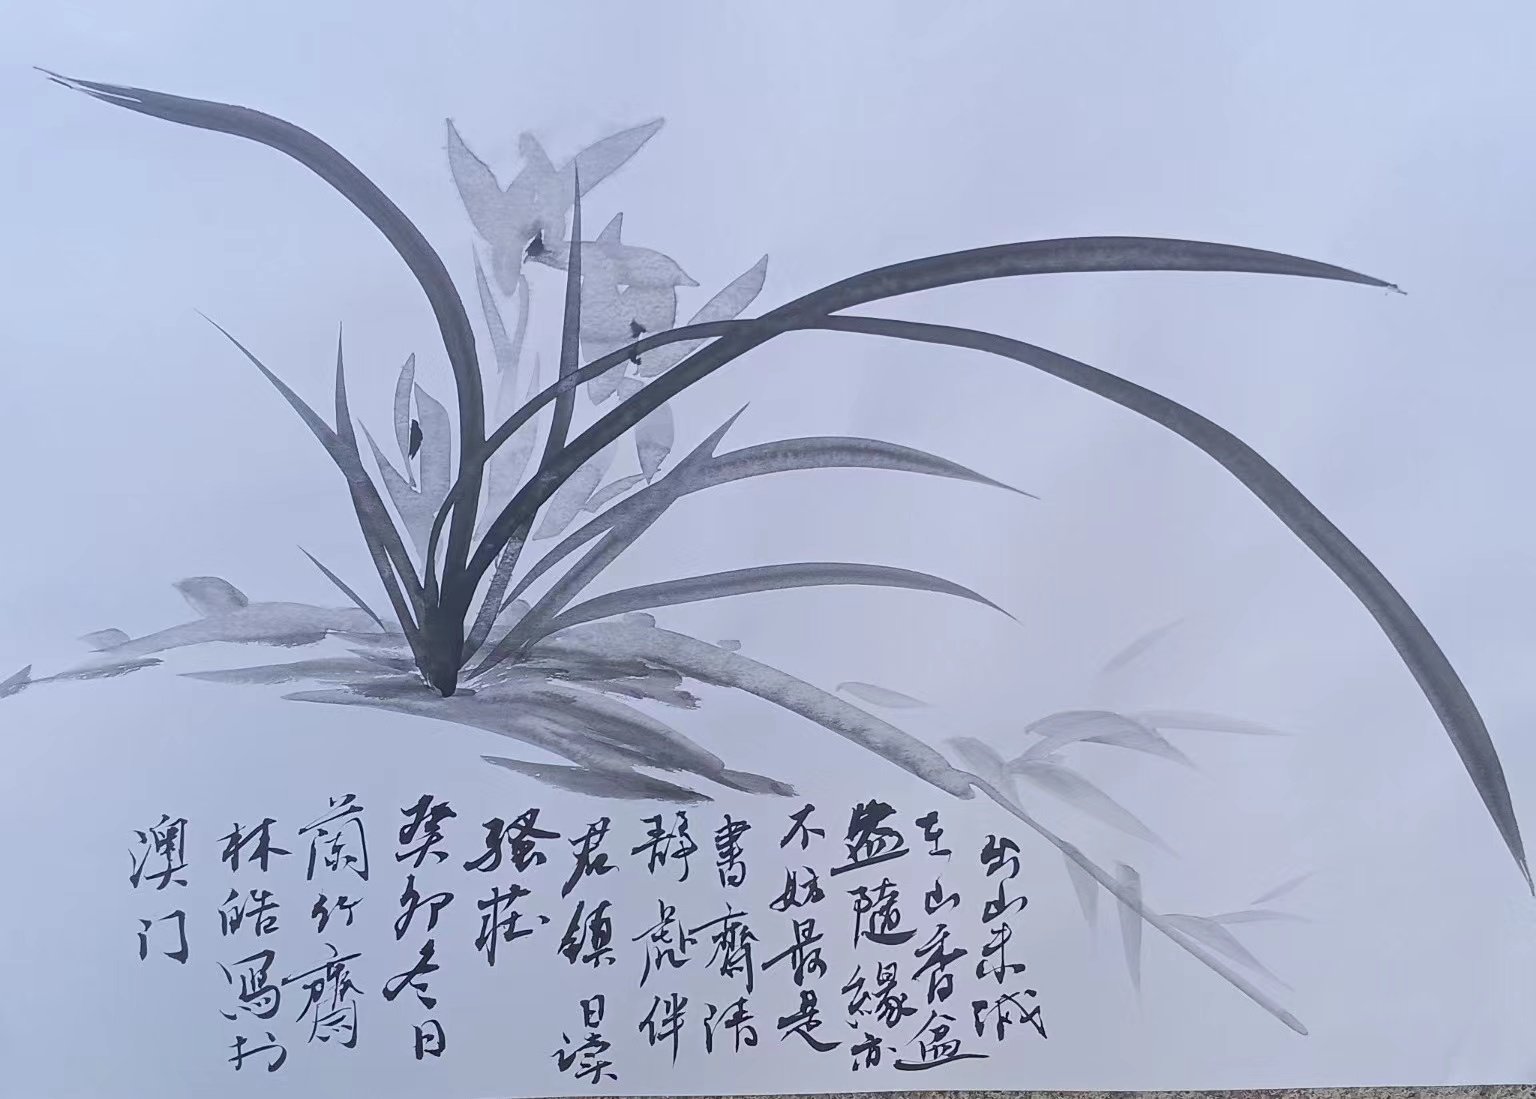 出山未減
在山香盆
盎隨緣亦
不妨最是
書齋清
靜處伴
君鎮日读
騷莊
癸卯冬日
蘭竹齋
林皓寫於
澳门